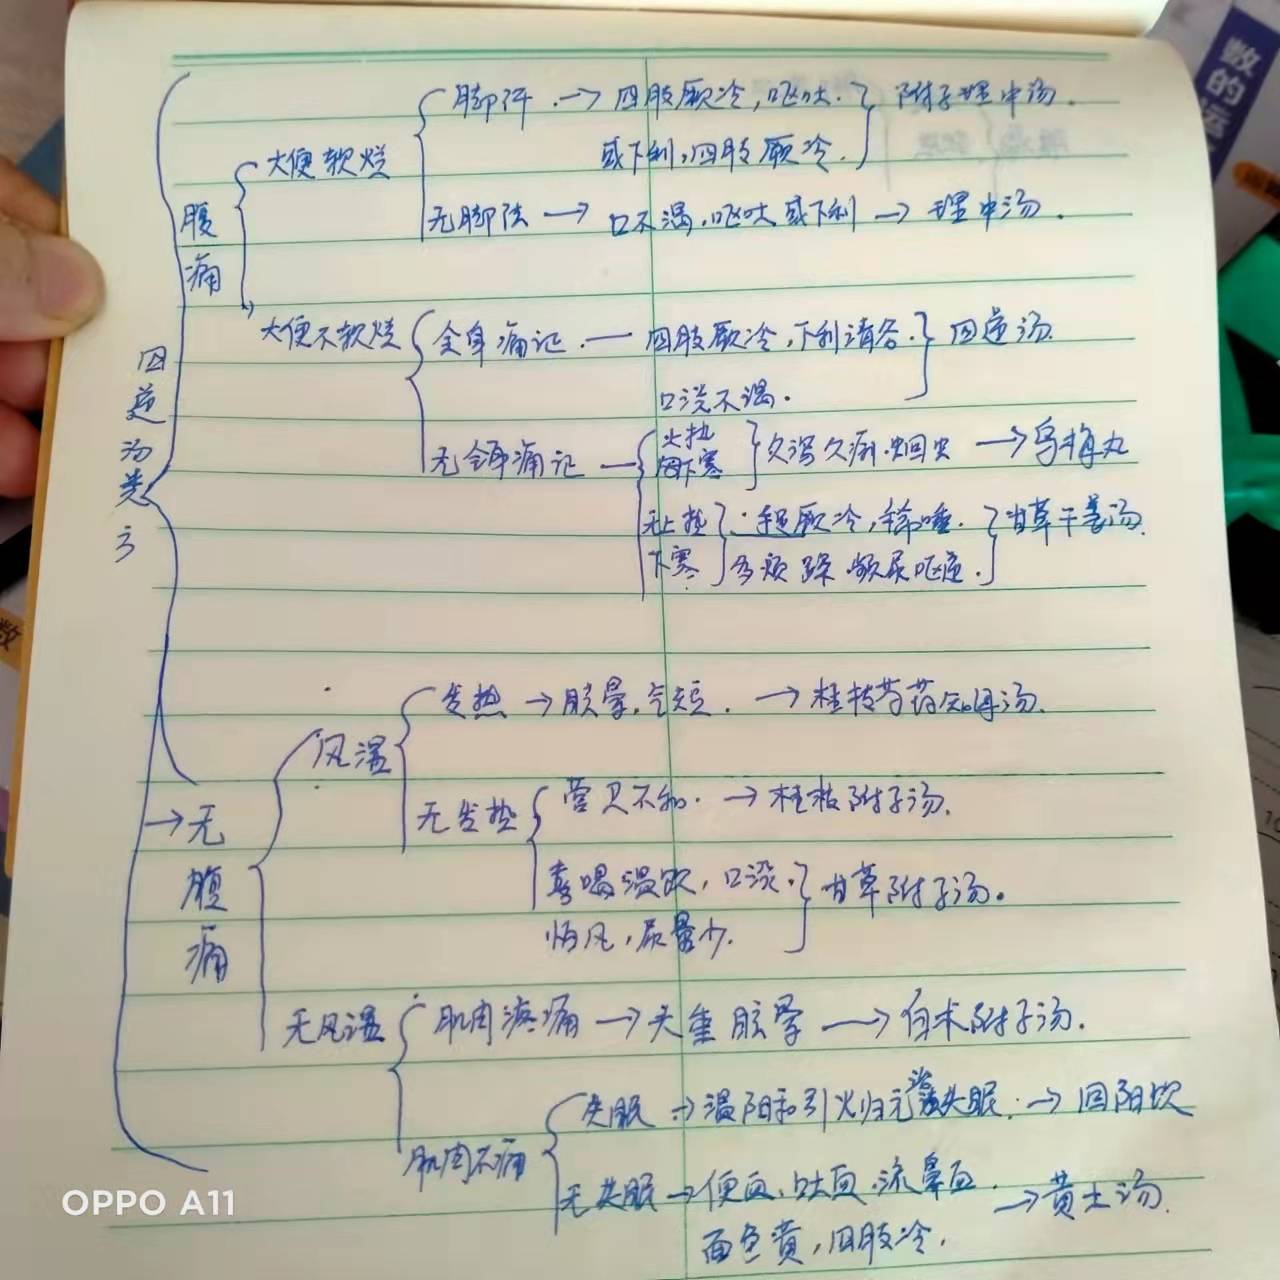 四逆汤类方
腹痛
大便软烂
脚汗 → 四肢厥冷,呕吐.
或下利,四肢厥冷.
附子理中汤.
无脚汗 → 口不渴,呕吐或下利 → 理中汤.
大便不软烂
全身痛记. — 四肢厥冷,下利清谷.
口淡不渴.
四逆汤.
无全身痛记 —
上热
下寒
久泻久痢.蛔虫 → 乌梅丸
无上热
下寒
手足厥冷,
多烦躁.频尿呕逆.
甘草干姜汤.
→无腹痛
风湿
发热 → 眩晕,气短. → 桂枝芍药知母汤.
无发热
营卫不和. → 桂枝附子汤.
喜喝温饮,口淡.
怕风,尿量少.
甘草附子汤.
无风湿
肌肉疼痛 → 头重眩晕 → 白术附子汤.
肌肉不痛
失眠 → 温阳和引火归元治失眠. → 回阳饮
无失眠 → 便血、吐血.流鼻血.
面色黄,四肢冷.
→ 黄土汤.
OPPO A11
数的运